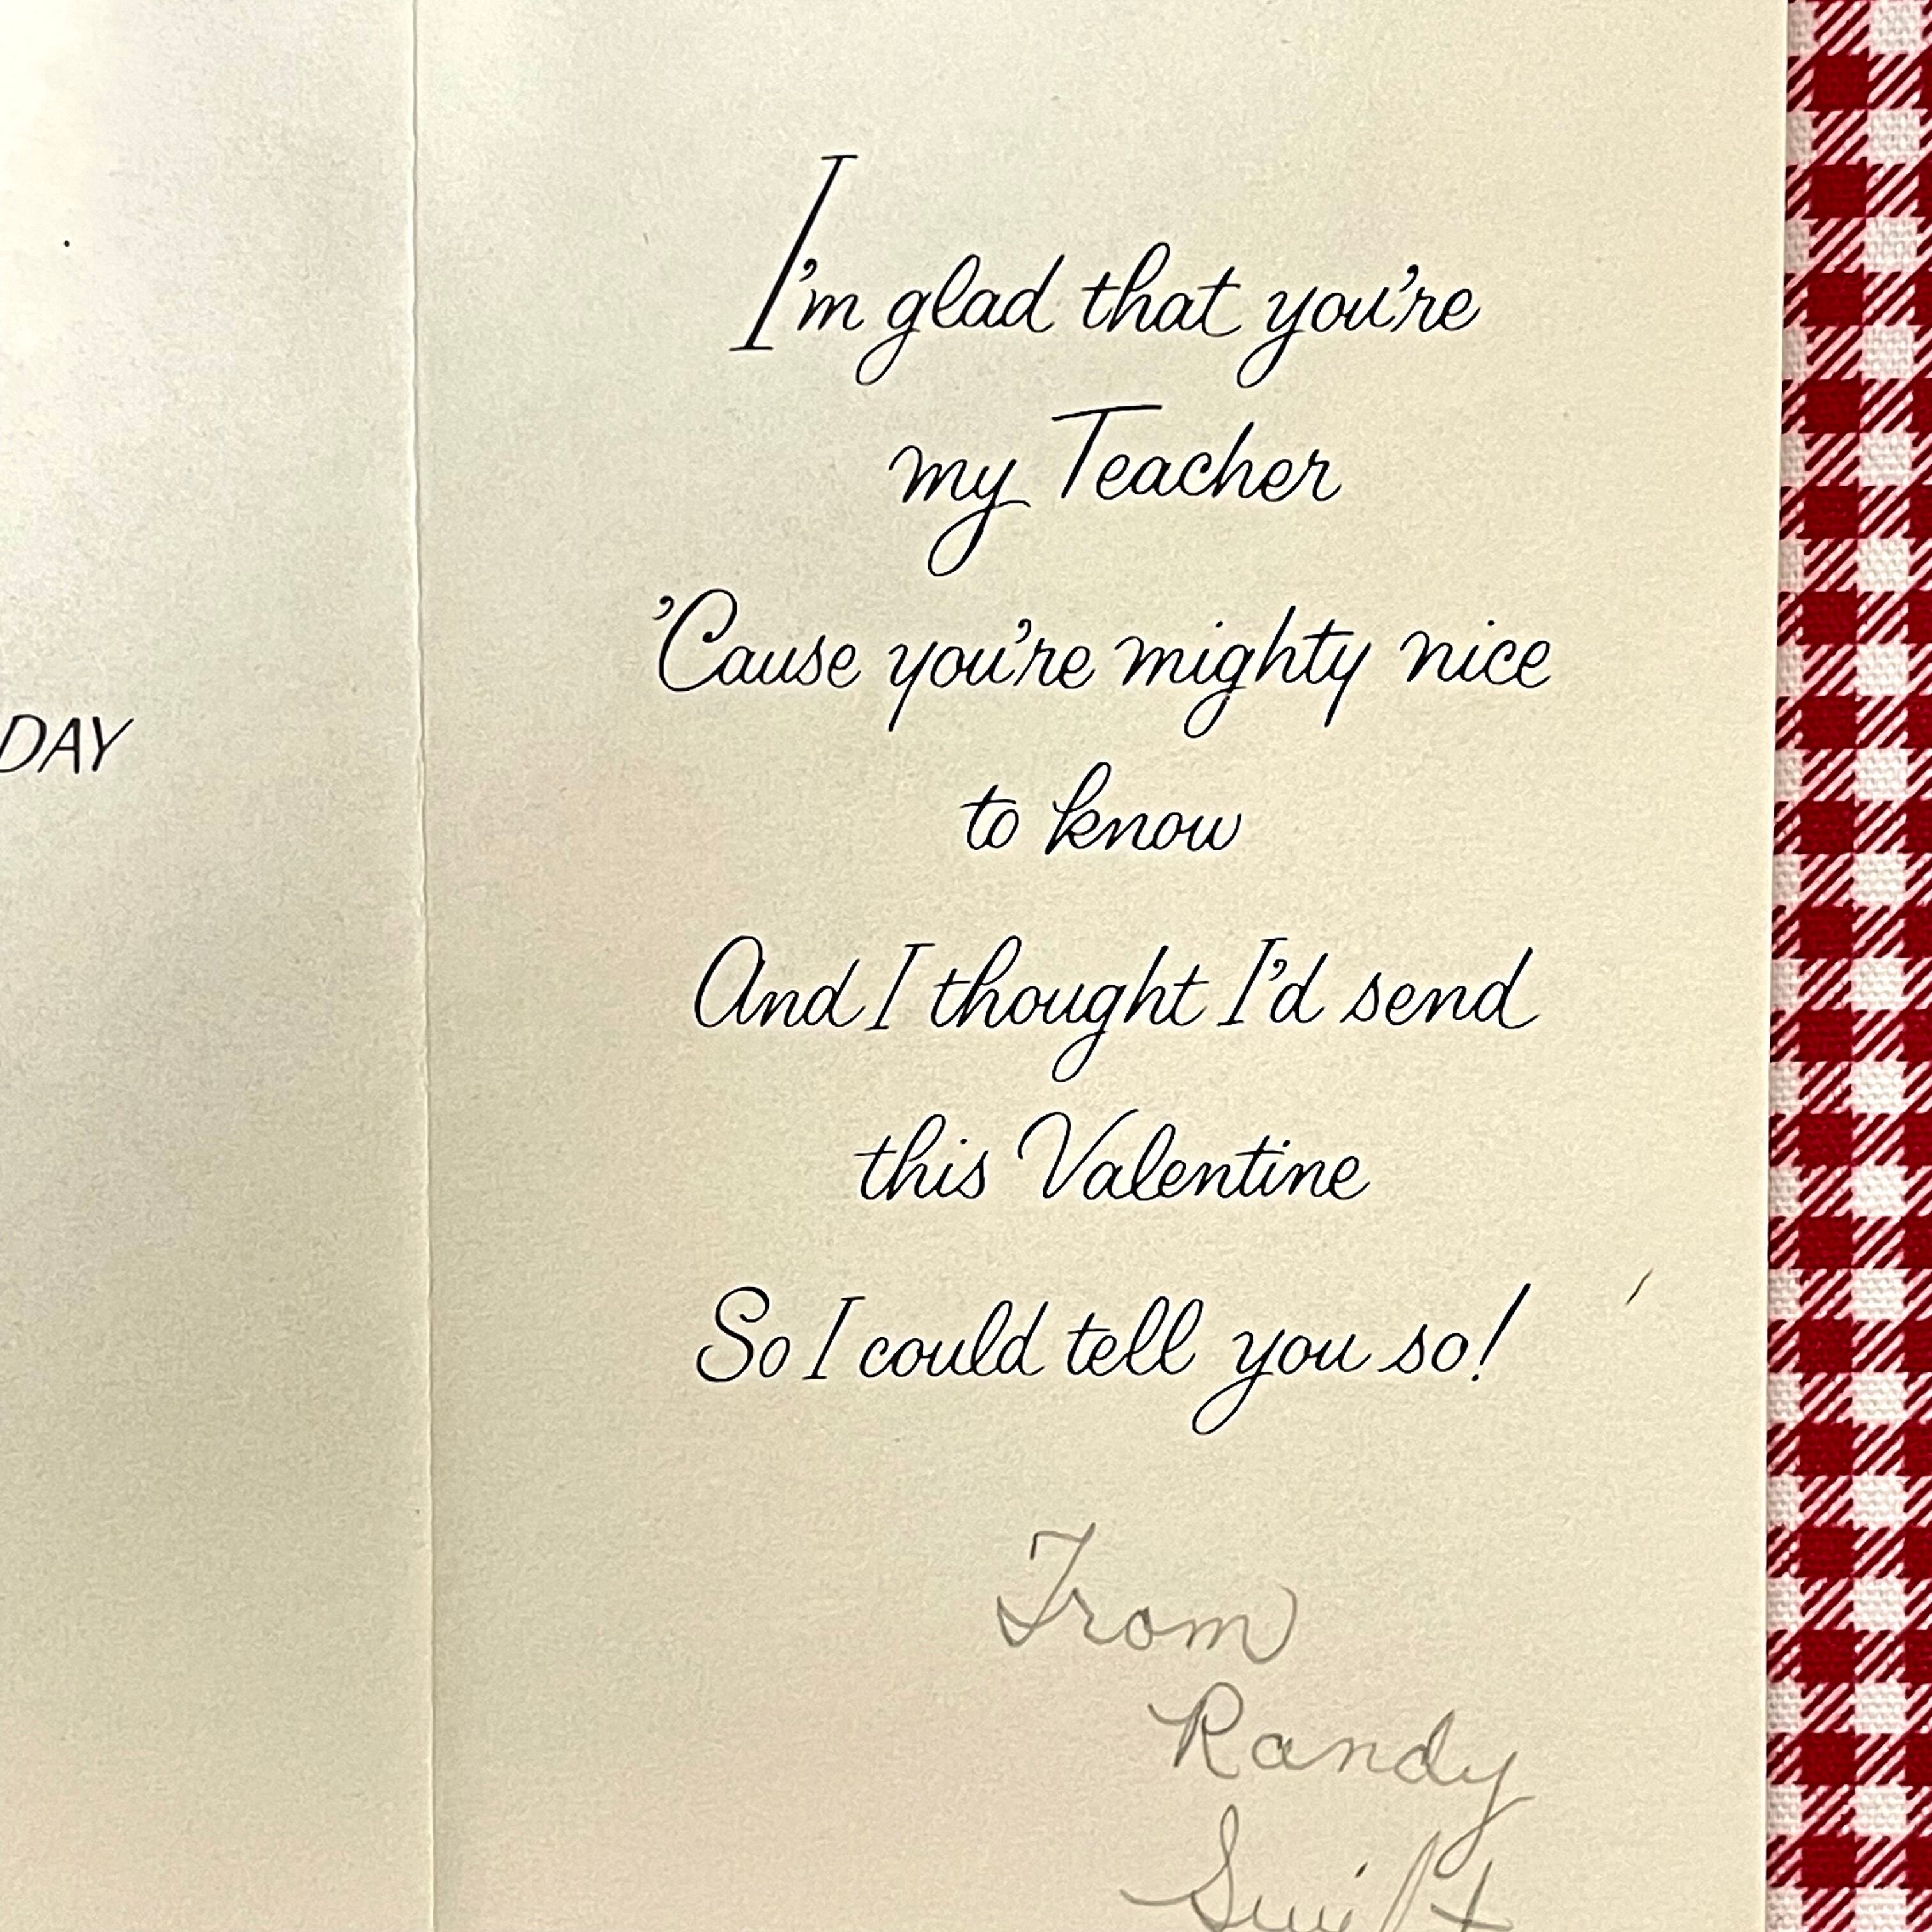 DAY
I'm glad that you're
my Teacher
'Cause you're mighty nice
to know
And I thought I'd send
this Valentine
So I could tell you so!
From
Randy
Swift